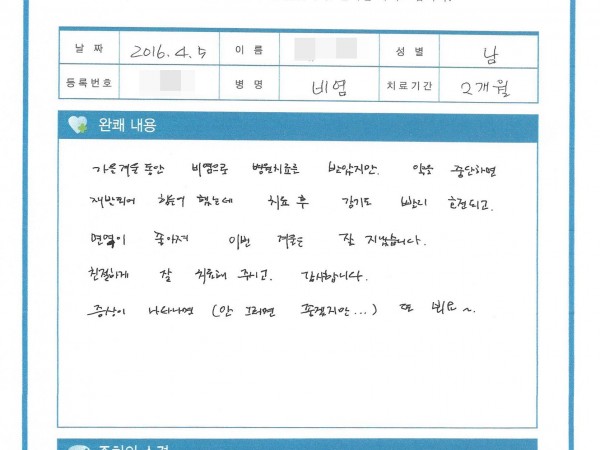 날 짜 2016. 4. 5 이 름 성 별 남
등록번호 병 명 비염 치료기간 2개월
완쾌 내용
가을겨울 동안 비염으로 병원치료를 받았지만. 약을 중단하면
재발되어 힘들어 했는데 치료 후 감기도 빨리 호전되고.
면역이 좋아져 이번 겨울은 잘 지냈습니다.
친절하게 잘 치료해 주시고. 감사합니다.
증상이 나타나면 (안 그러면 좋겠지만...) 또 뵈요~.